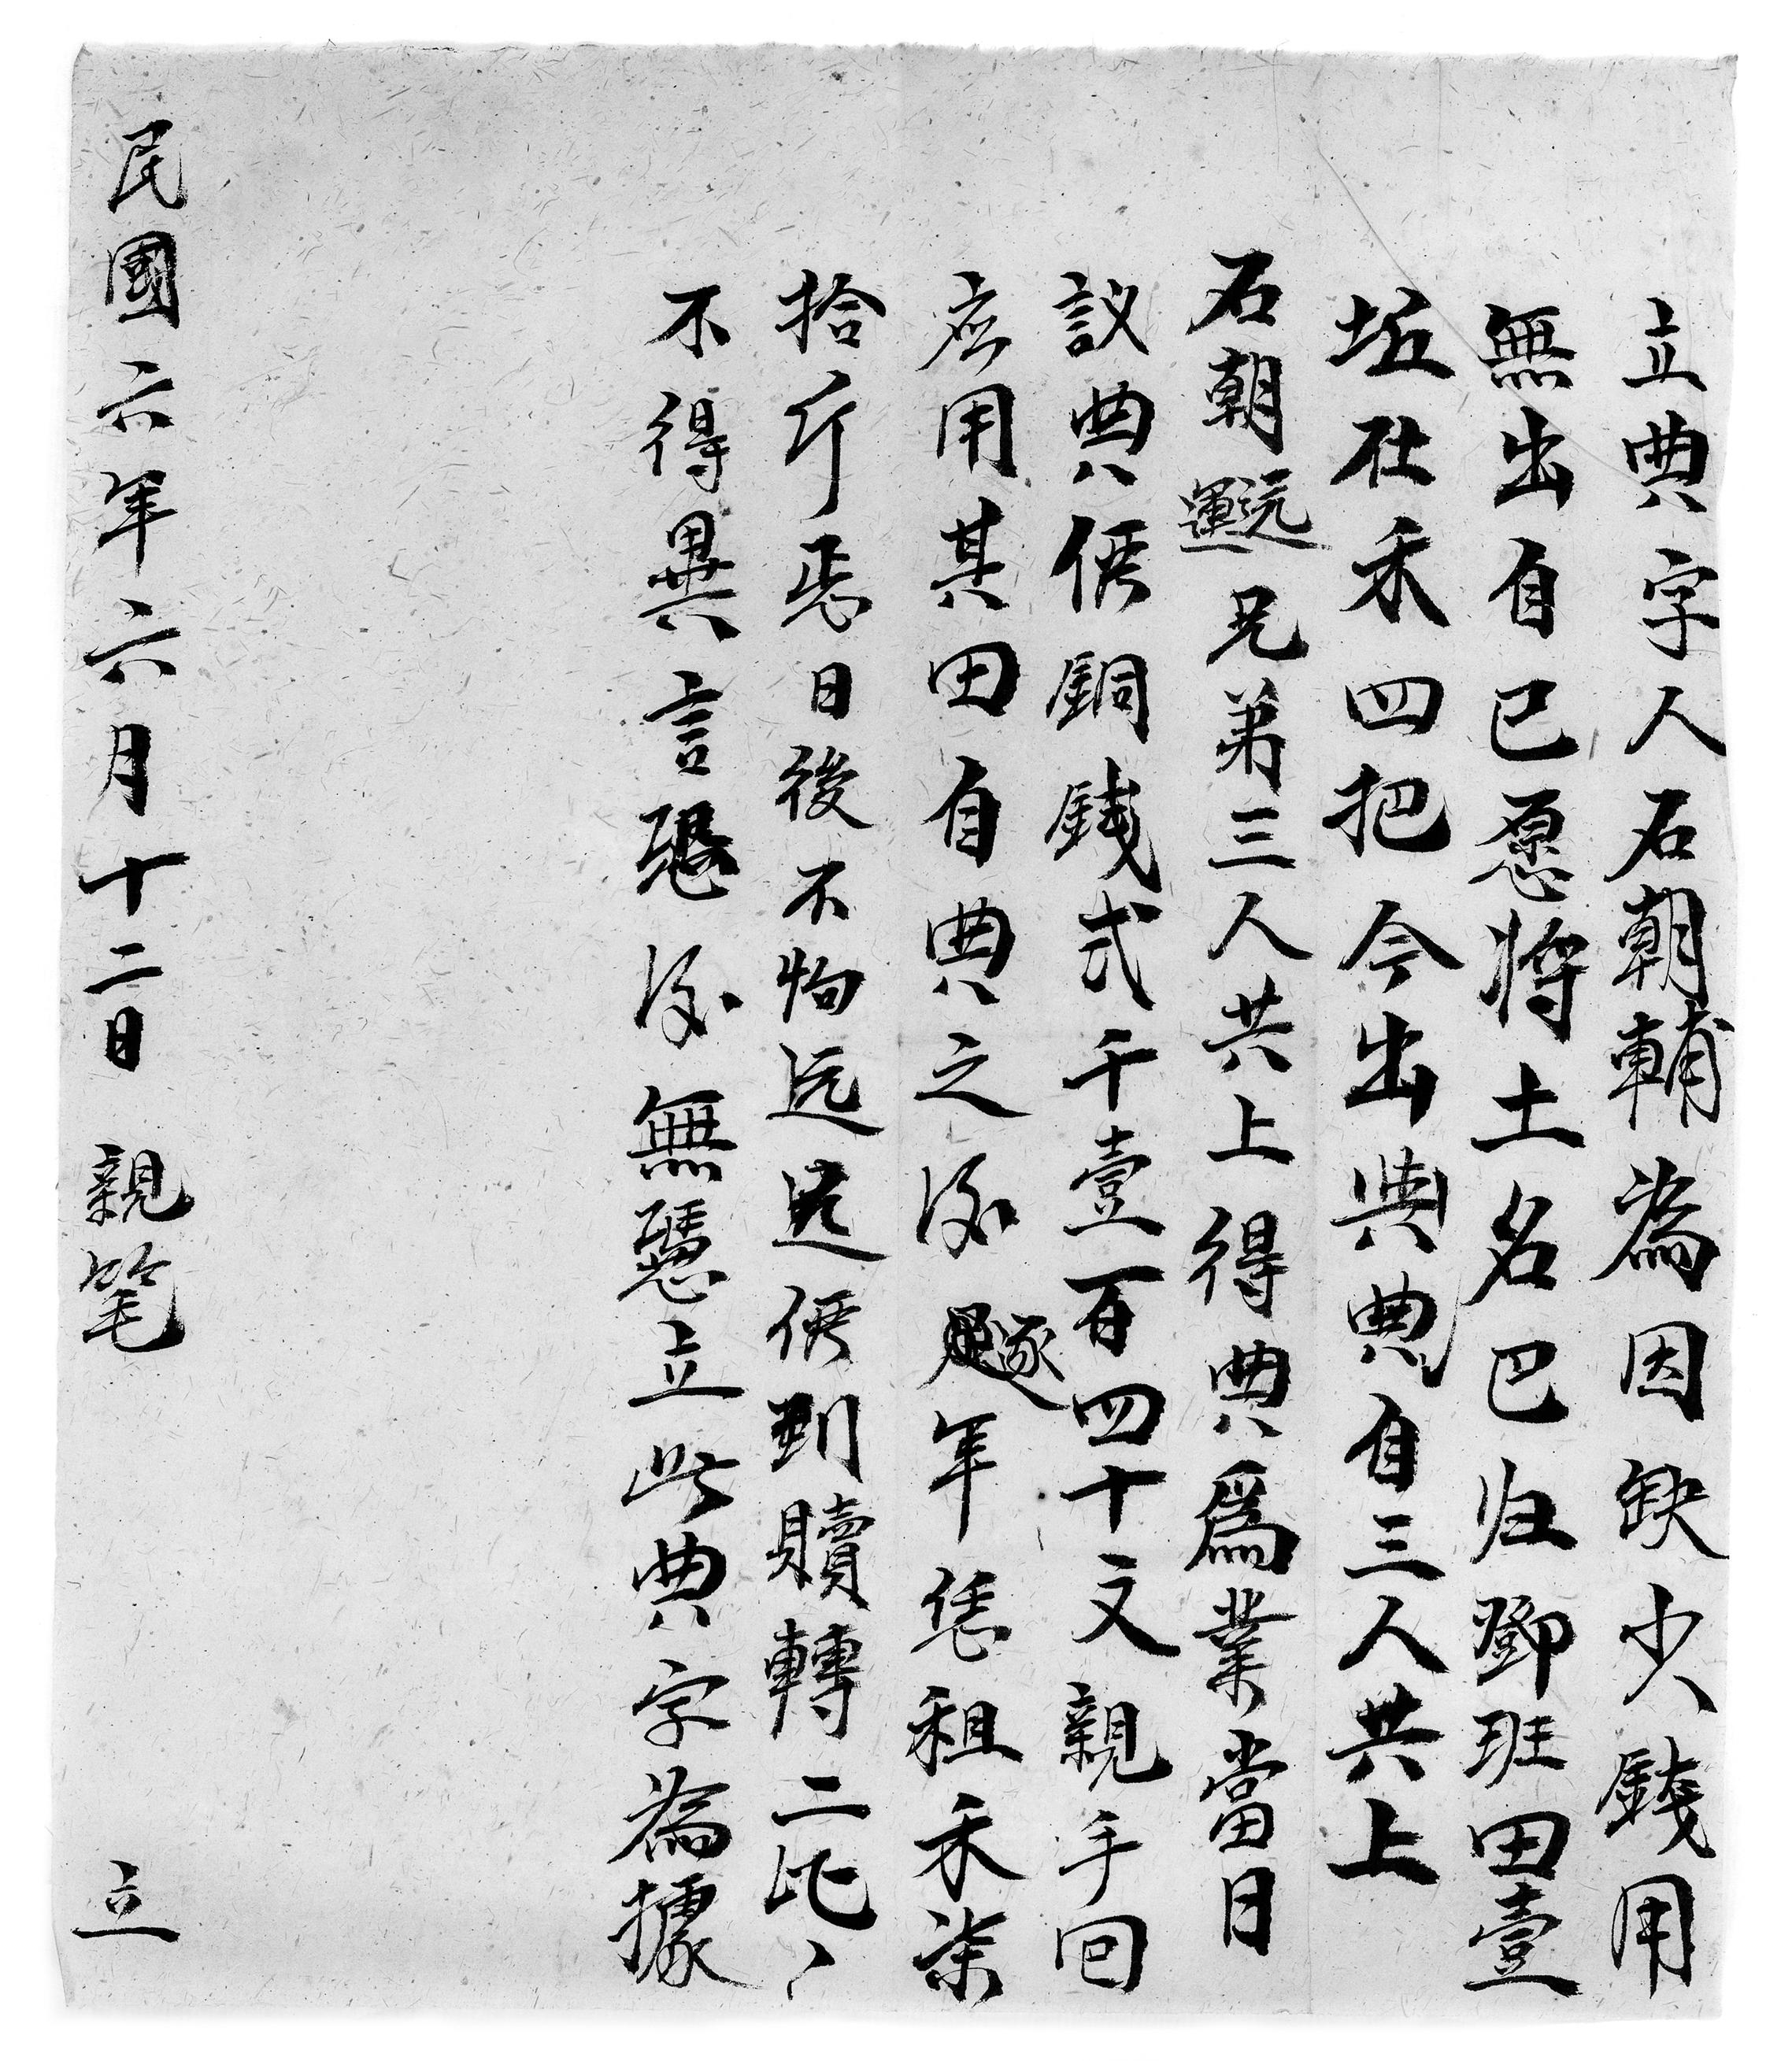 立典字人石朝輔為因缺少錢用
無出自己愿将土名巴归鄧班田壹
坵在禾四把今出典自三人共上
石朝遠運兄弟三人共上得典爲業當日
議典價銅錢弍千壹百四十文親手回
應用其田自典之後逐年恁租禾柒
拾斤恁日後不拘远近價到贖轉二比
不得異言恐後無憑立此典字為據
民國六年六月十二日 親筆 立